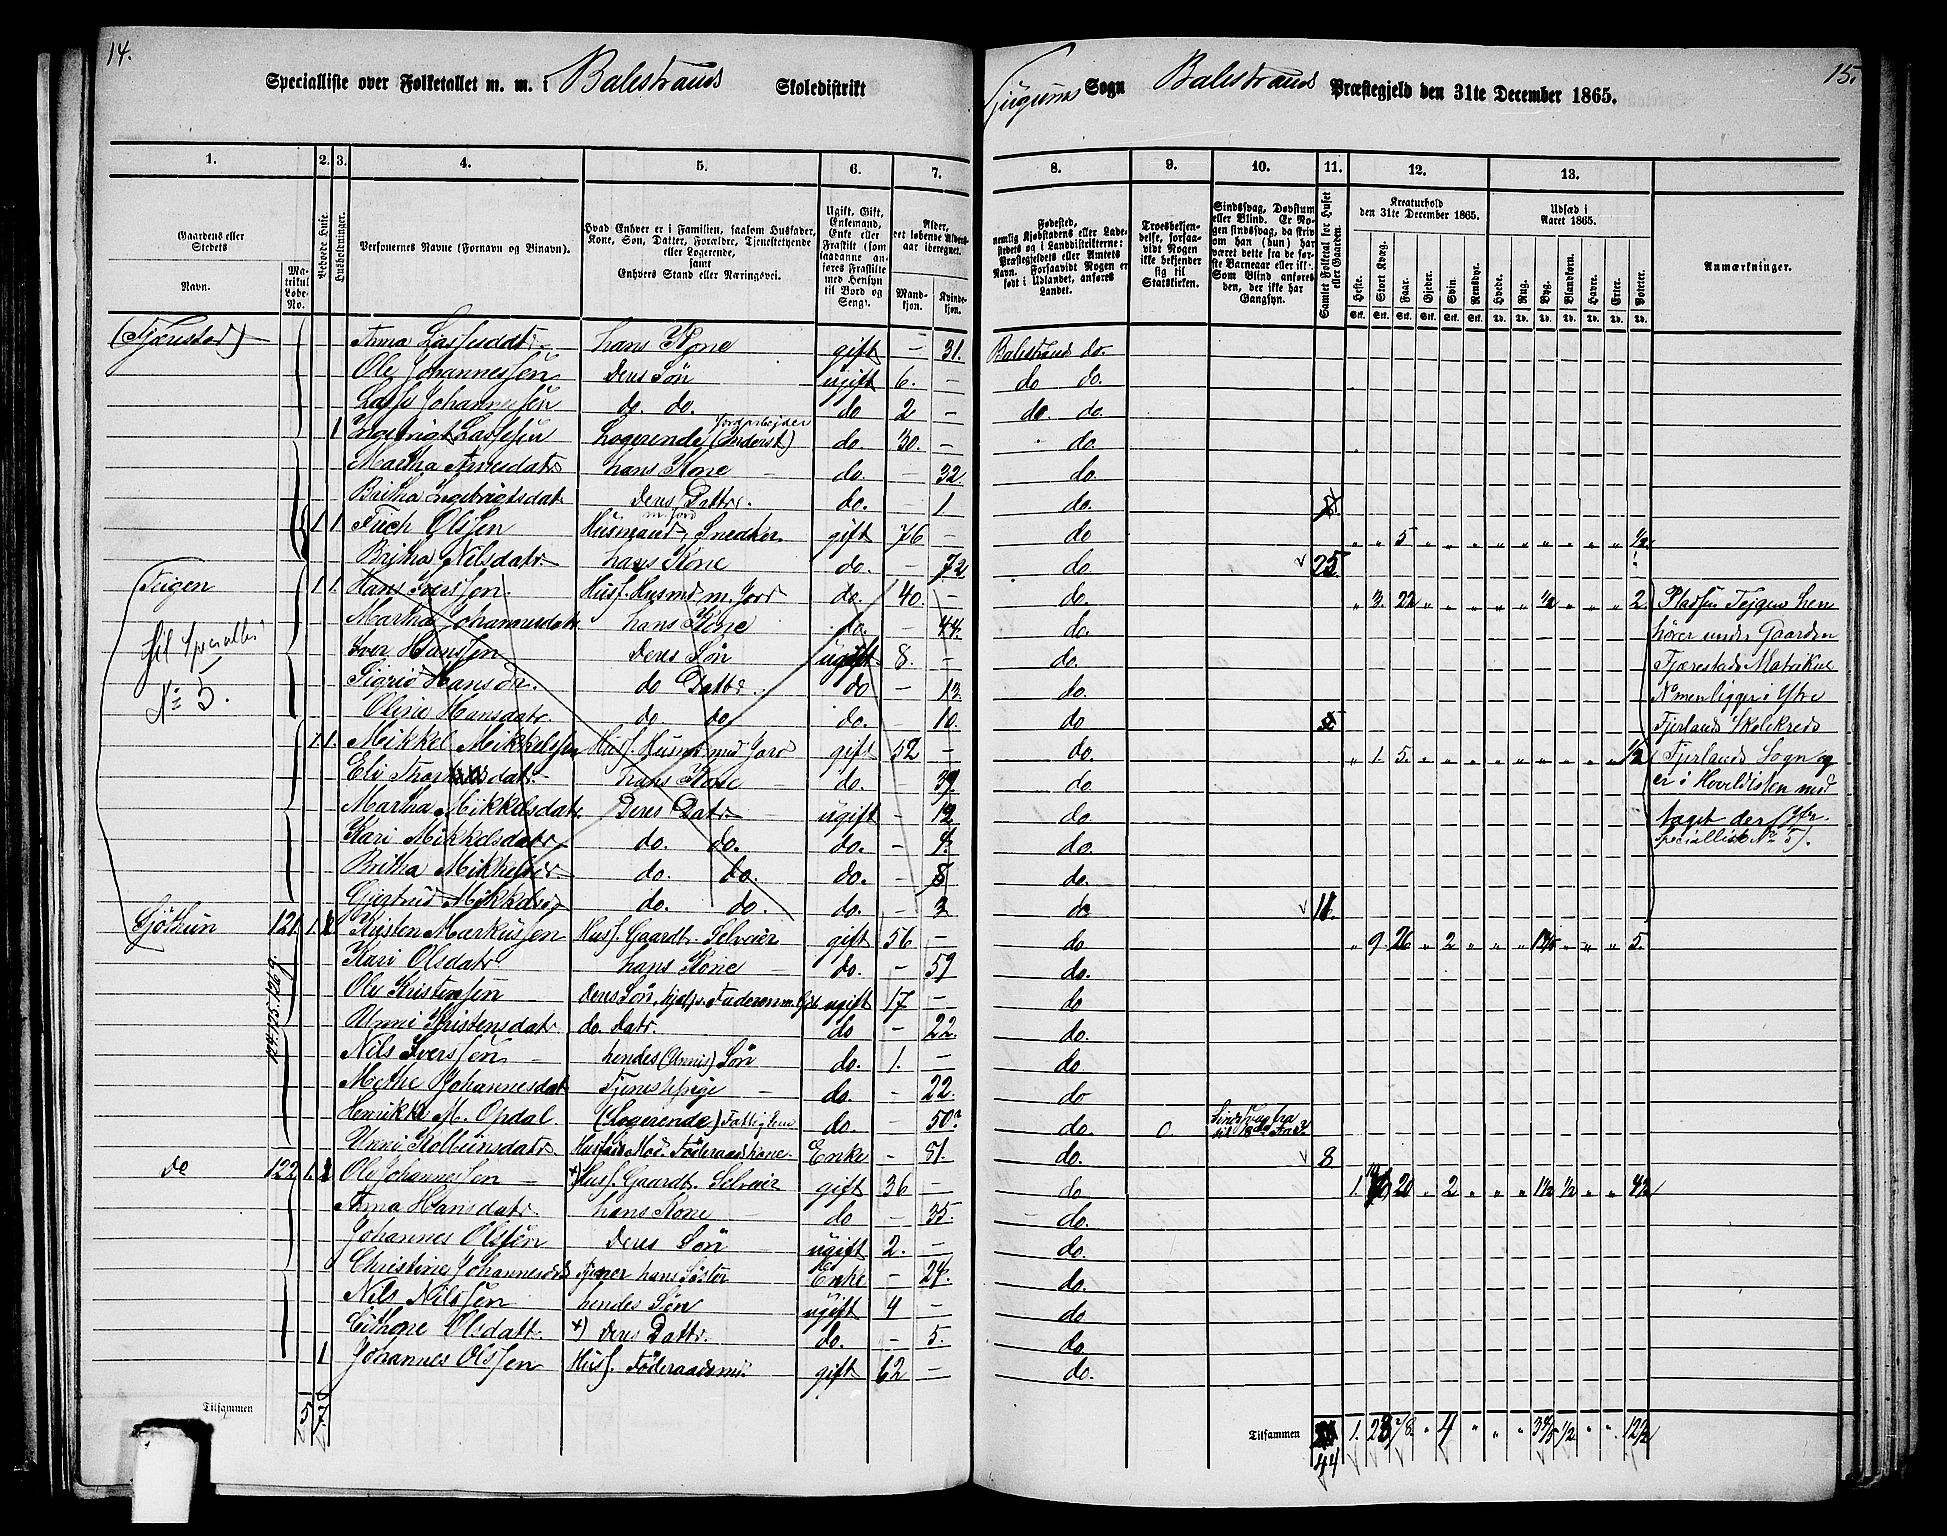 14.
Specialliste over Folketallet m. m. i Balestrand Skoledistrikt
Sogn Balestrands Præstegjeld den 31te December 1865.
15.
1. 2. 3. 4. 5. 6. 7. 8. 9. 10. 11. 12. 13.
Gaardens eller Stedets
Navn.
Matrikul Løbe-No.
Beboede Huse.
Husholdninger.
Personernes Navne (Fornavn og Binavn).
Hvad Enhver er i Familien, saasom Husfader, Kone, Søn, Datter, Forældre, Tjenestetyende eller Logerende, samt Enhvers Stand eller Næringsvei.
Ugift, Gift, Enkemand, Enke eller Fraskilt (som saadanne anføres Fraskilte med Hensyn til Bord og Seng).
Alder, det løbende Alders-aar iberegnet.
Mandkjøn.
Kvindekjøn.
Fødested, nemlig Kjøbstadens eller Ladestedets og i Landdistrikterne: Præstegjeldets eller Amtets Navn. Forsaavidt Nogen er født i Udlandet, anføres Landet.
Troesbekjendelse, forsaavidt Nogen ikke bekjender sig til Statskirken.
Sindssvag, Døvstum eller Blind. Er Nogen sindssvag, da skriv om han (hun) har været dette fra de første Barneaar eller ikke. Som Blind anføres den, der ikke har Gangsyn.
Samlet Folketal for Huset eller Gaarden.
Kreaturhold den 31te December 1865.
Heste. Stort Kvæg. Faar. Gjeder. Svin. Rensdyr.
Udsæd i Aaret 1865.
Hvede. Rug. Byg. Blandkorn. Havre. Erter. Poteter.
Anmærkninger.
(Fjærestad) Anna Lassesdtr. hans Kone gift — 31. Balestrand do.
Ole Johannessen Deres Søn ugift 6. — do do.
Lasse Johannessen do. do. do 2 — do. do.
1 Ingebrigt Lassesen Logerende (Inderst) Jordarbejder do. 30. — do.
Martha Arnesdatr hans Kone — do. — 32. do.
Britha Ingebrigtsdat Deres Dattr. do. — 1 do.
1 1 Olsen Husmand m. Jord, Snedker gift 76 — do 5 1/2
Britha Nilsdatr. hans Kone do. — 72 do. 25.
Tugen 1 1. Hans Iversen. Husf. Husmd m. Jord do. 40. — do. 3. 22 1/2 2. Pladsen Tejgen hen
Martha Johannesdatr hans Kone do. — 44. do. hører under Gaarden
til Speciallis Iver Hansen Deres Søn ugift 8. — do Fjærestads Matrikul
No 5. Sigrid Hansdr. do Dattr. do — 13. do. No men ligger i Ytre
Oline Hansdatr do. do do. — 10. do Fjerlands Skolekreds
1 1. Mikkel Mikkelsen Husf. Husmd med Jord gift 52 — do. 1. 5. 1/2 Fjerlands Sogn og
Eli datr. hans Kone do. — 39. do. er i Hovedlisten med
Martha Mikkelsdatr. Deres Datr. ugift — 12 do. taget der (Ytr.
Kari Mikkelsdatr do. do. do. — do. Speciallist No 5).
Britha Mikkelsdr. do. do. do. — 8 do.
Gjertrud Mikkelsdr do. do. do. — 3 do 11.
Sjøthun 121. 1. Kristen Markussen Husf. Gaardbr. Selveier gift 56 — do 9. 26 2 5.
124. 125. 126 9. Kari Olsdatr hans Kone — do. — 59 do.
Ole Kristensen Deres Søn, hjelper Faderen m. ugift 17 — do
Unni Kristensdatr do. Datr. do — 22. do.
Nils Iversen — hendes (Unnis) Søn do. 1. — do
Methe Johannesdat Tjenestepige — do. — 22. do
Henrikke M. Opdal (Logerende) Fattiglem do. — 50? do 0.
Unni Kolbeinsdatr Husfars Mod. Føderaadskone. Enke — 81. do. 8
do 122 1. Ole Johannessen — +) Husf. Gaardbr. Selveier gift 36 — do 1. 20 2 1 1/2 1/2 4 1/2
Anna Hansdatr hans Kone do — 35. do.
Johannes Olsen Deres Søn ugift 2. — do.
Christine Johannesdtr Tjener hans Søster Enke — 27. do.
Nils Nilssen hendes Søn ugift 4 — do
Olsdatr +) Deres Dattr. do. — 5. do.
1 Johannes Olssen Husf. Føderaadsm. gift 62 — do.
Tilsammen 5
Tilsammen 44 1. 23 78 4 3 1/2 12 1/2